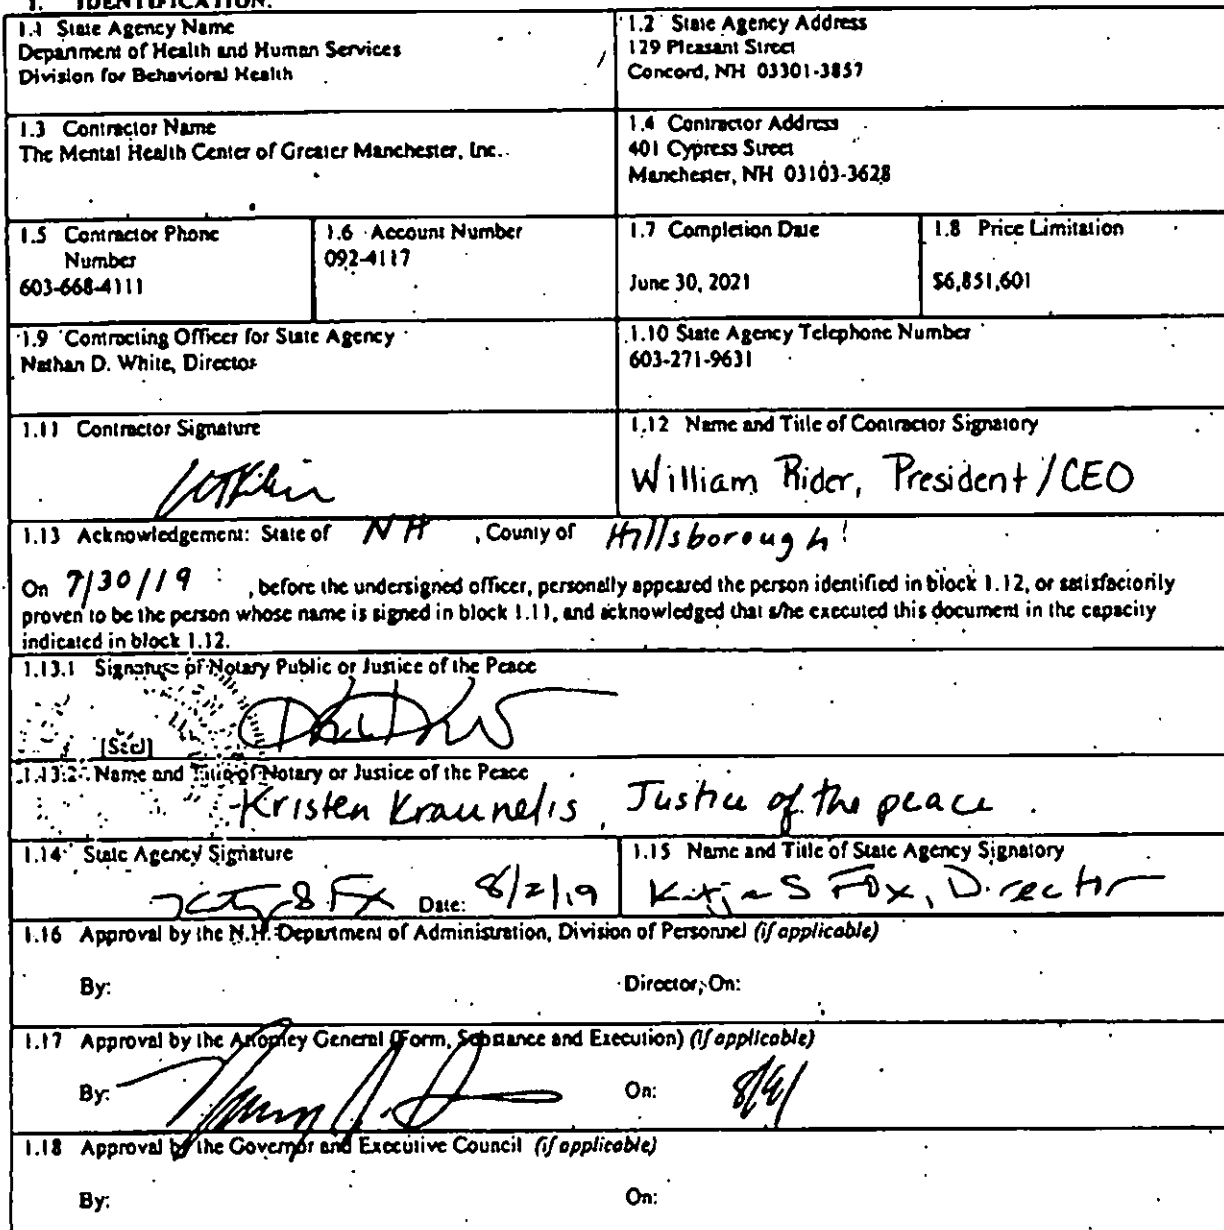 1. IDENTIFICATION.
1.1 State Agency Name
Department of Health and Human Services
Division for Behavioral Health
1.2 State Agency Address
129 Pleasant Street
Concord, NH 03301-3857
1.3 Contractor Name
The Mental Health Center of Greater Manchester, Inc.
1.4 Contractor Address
401 Cypress Street
Manchester, NH 03103-3628
1.5 Contractor Phone
Number
603-668-4111
1.6 Account Number
092-4117
1.7 Completion Date
June 30, 2021
1.8 Price Limitation
$6,851,601
1.9 Contracting Officer for State Agency
Nathan D. White, Director
1.10 State Agency Telephone Number
603-271-9631
1.11 Contractor Signature
1.12 Name and Title of Contractor Signatory
William Rider, President/CEO
1.13 Acknowledgement: State of NH , County of Hillsborough
On 7/30/19 , before the undersigned officer, personally appeared the person identified in block 1.12, or satisfactorily
proven to be the person whose name is signed in block 1.11, and acknowledged that s/he executed this document in the capacity
indicated in block 1.12.
1.13.1 Signature of Notary Public or Justice of the Peace
[Seal]
1.13.2 Name and Title of Notary or Justice of the Peace
Kristen Kraunelis, Justice of the peace
1.14 State Agency Signature
Date: 8/2/19
1.15 Name and Title of State Agency Signatory
Katja S Fox, Director
1.16 Approval by the N.H. Department of Administration, Division of Personnel (if applicable)
By: Director, On:
1.17 Approval by the Attorney General (Form, Substance and Execution) (if applicable)
By: On:
1.18 Approval by the Governor and Executive Council (if applicable)
By: On: